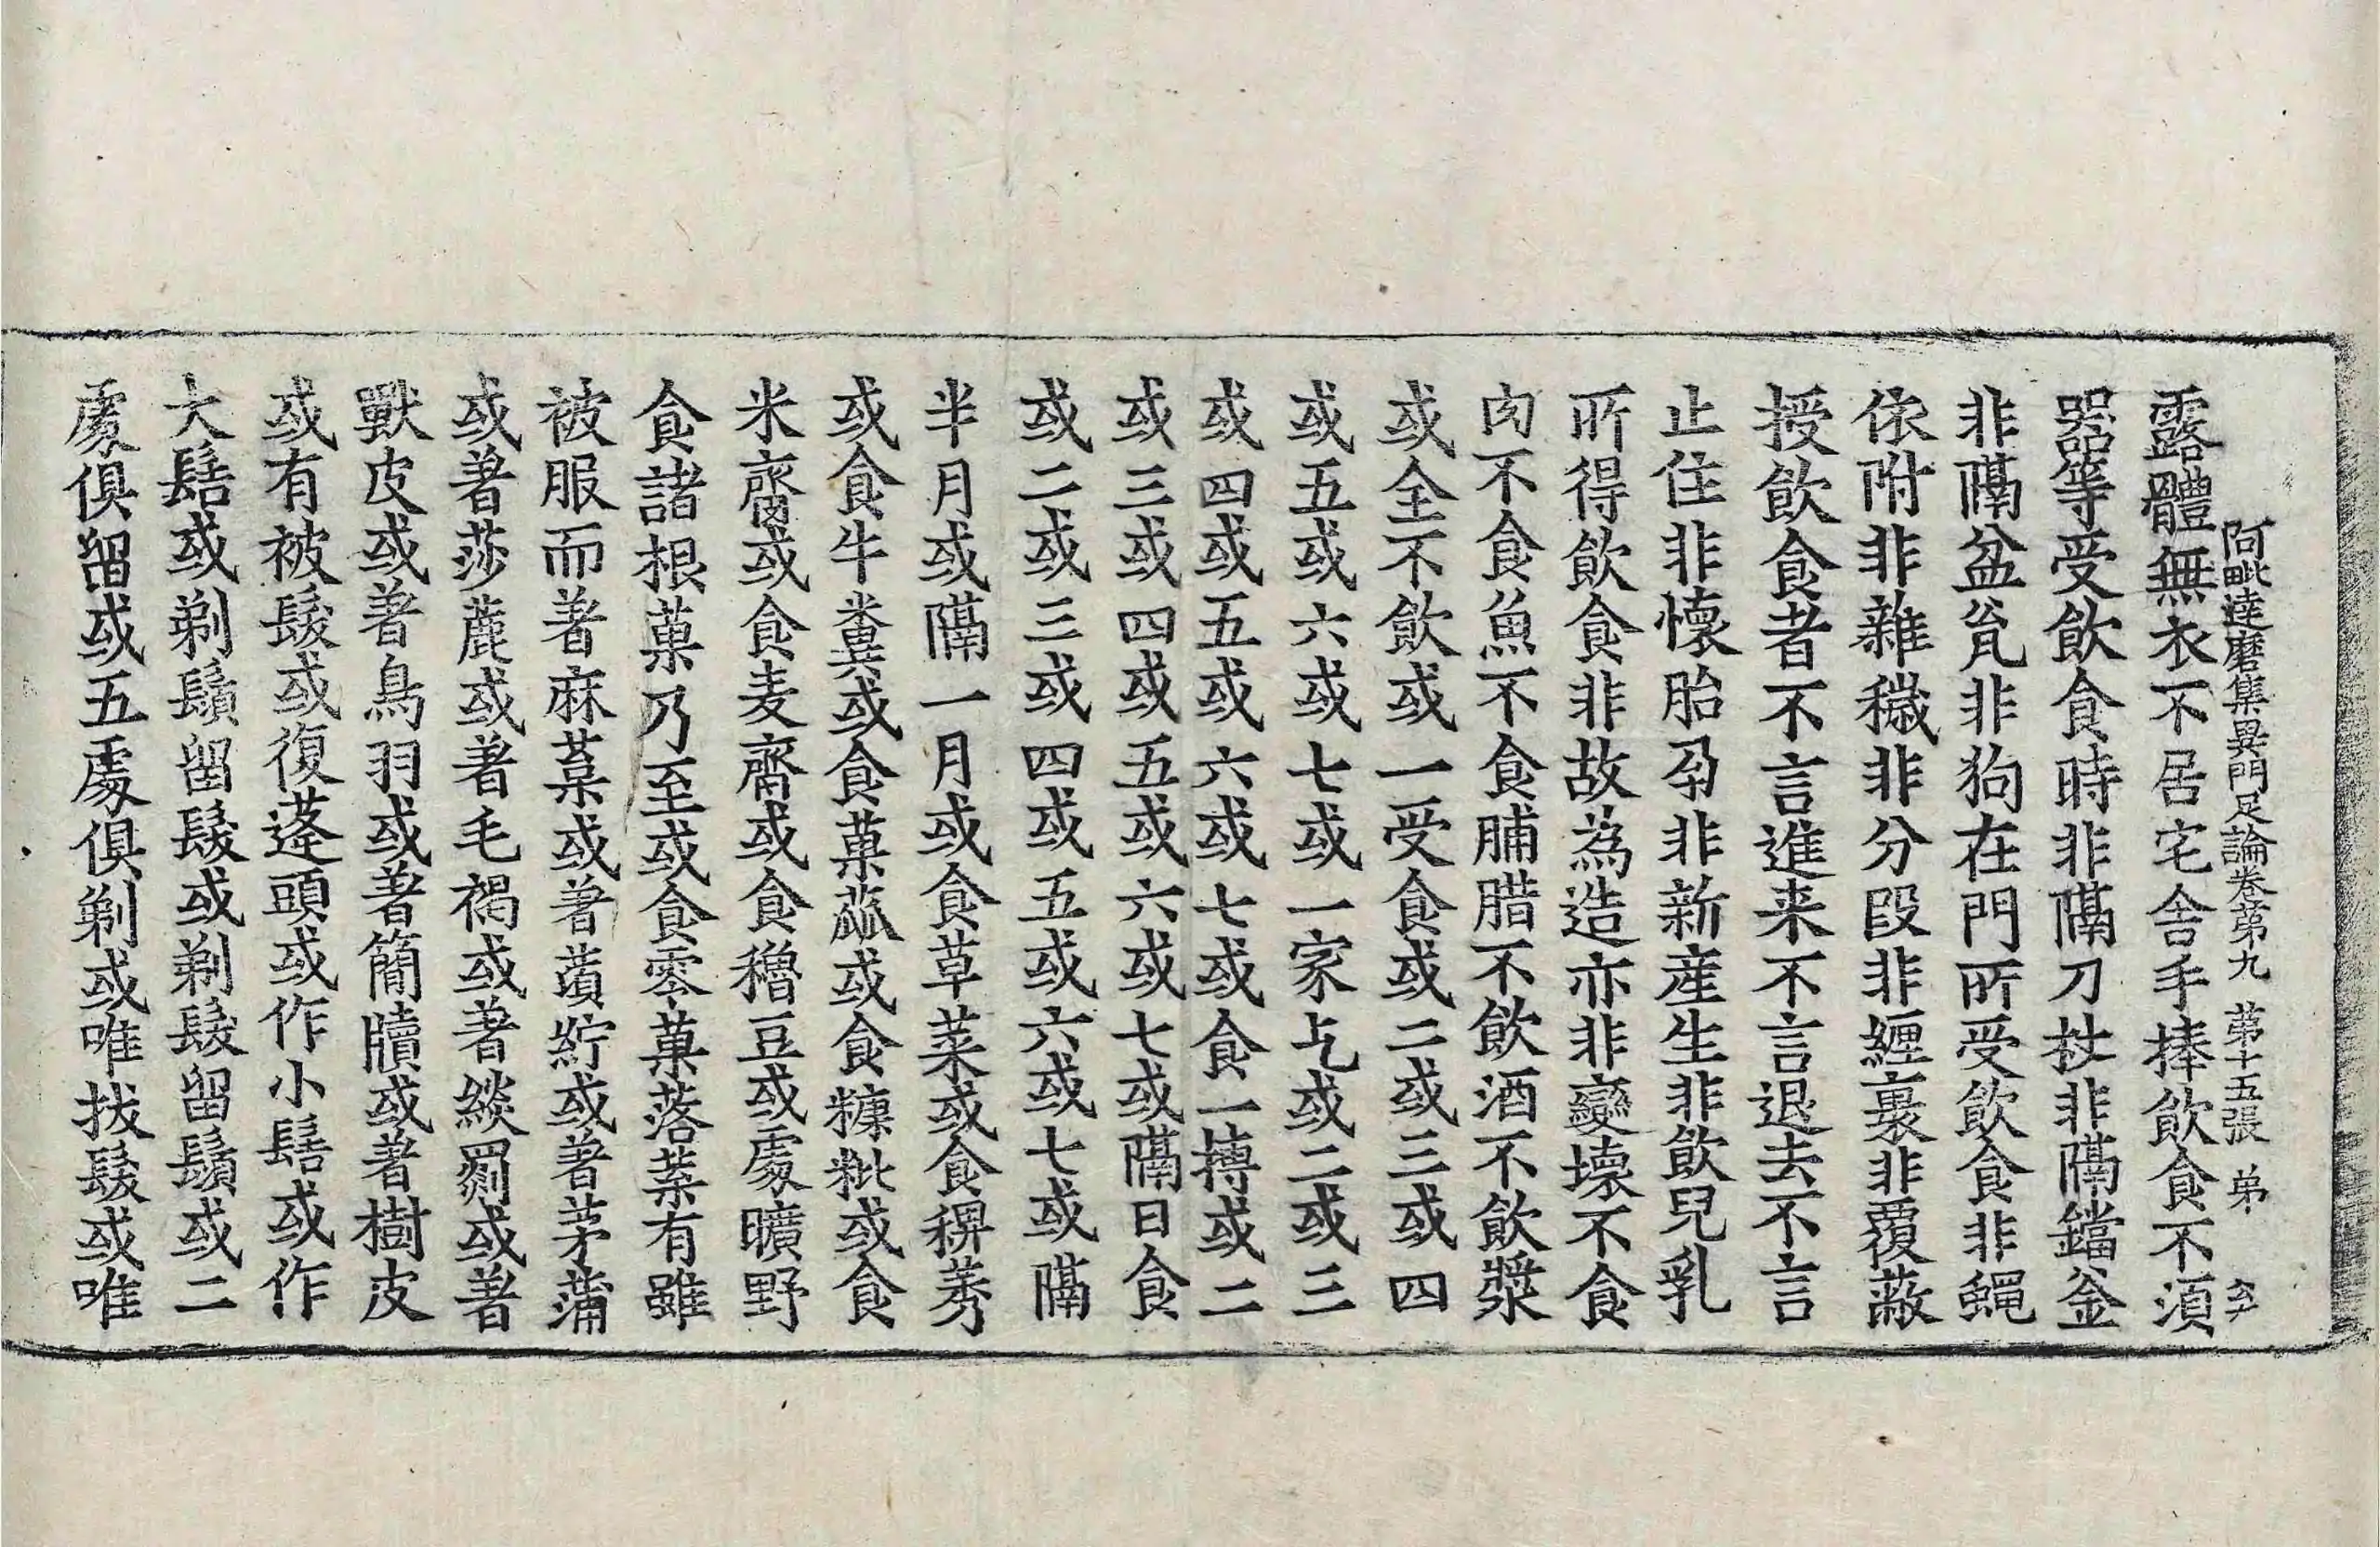 阿毗達磨集異門足論卷第九　第十五張　弟
露體無衣不居宅舍手捧飲食不須
器等受飲食時非隔刀杖非隔鐺釜
非隔盆瓮非狗在門所受飲食非蠅
依附非雜穢非分段非纏裹非覆蔽
授飲食者不言進来不言退去不言
止住非懷胎孕非新産生非飲兒乳
所得飲食非故為造亦非變壞不食
肉不食魚不食脯腊不飲酒不飲漿
或全不飲或一受食或二或三或四
或五或六或七或一家乞或二或三
或四或五或六或七或食一摶或二
或三或四或五或六或七或隔日食
或二或三或四或五或六或七或隔
半月或隔一月或食草菜或食稗莠
或食牛糞或食菓蓏或食糠粃或食
米齏或食麦齏或食穭豆或處曠野
食諸根菓乃至或食零菓落葉有雖
被服而著麻葈或著蕡紵或著茅蒲
或著莎蔍或著毛褐或著緂罽或著
獸皮或著鳥羽或著簡牘或著樹皮
或有被髮或復蓬頭或作小髻或作
大髻或剃鬚留髮或剃髮留鬚或二
處俱留或五處俱剃或唯拔髮或唯